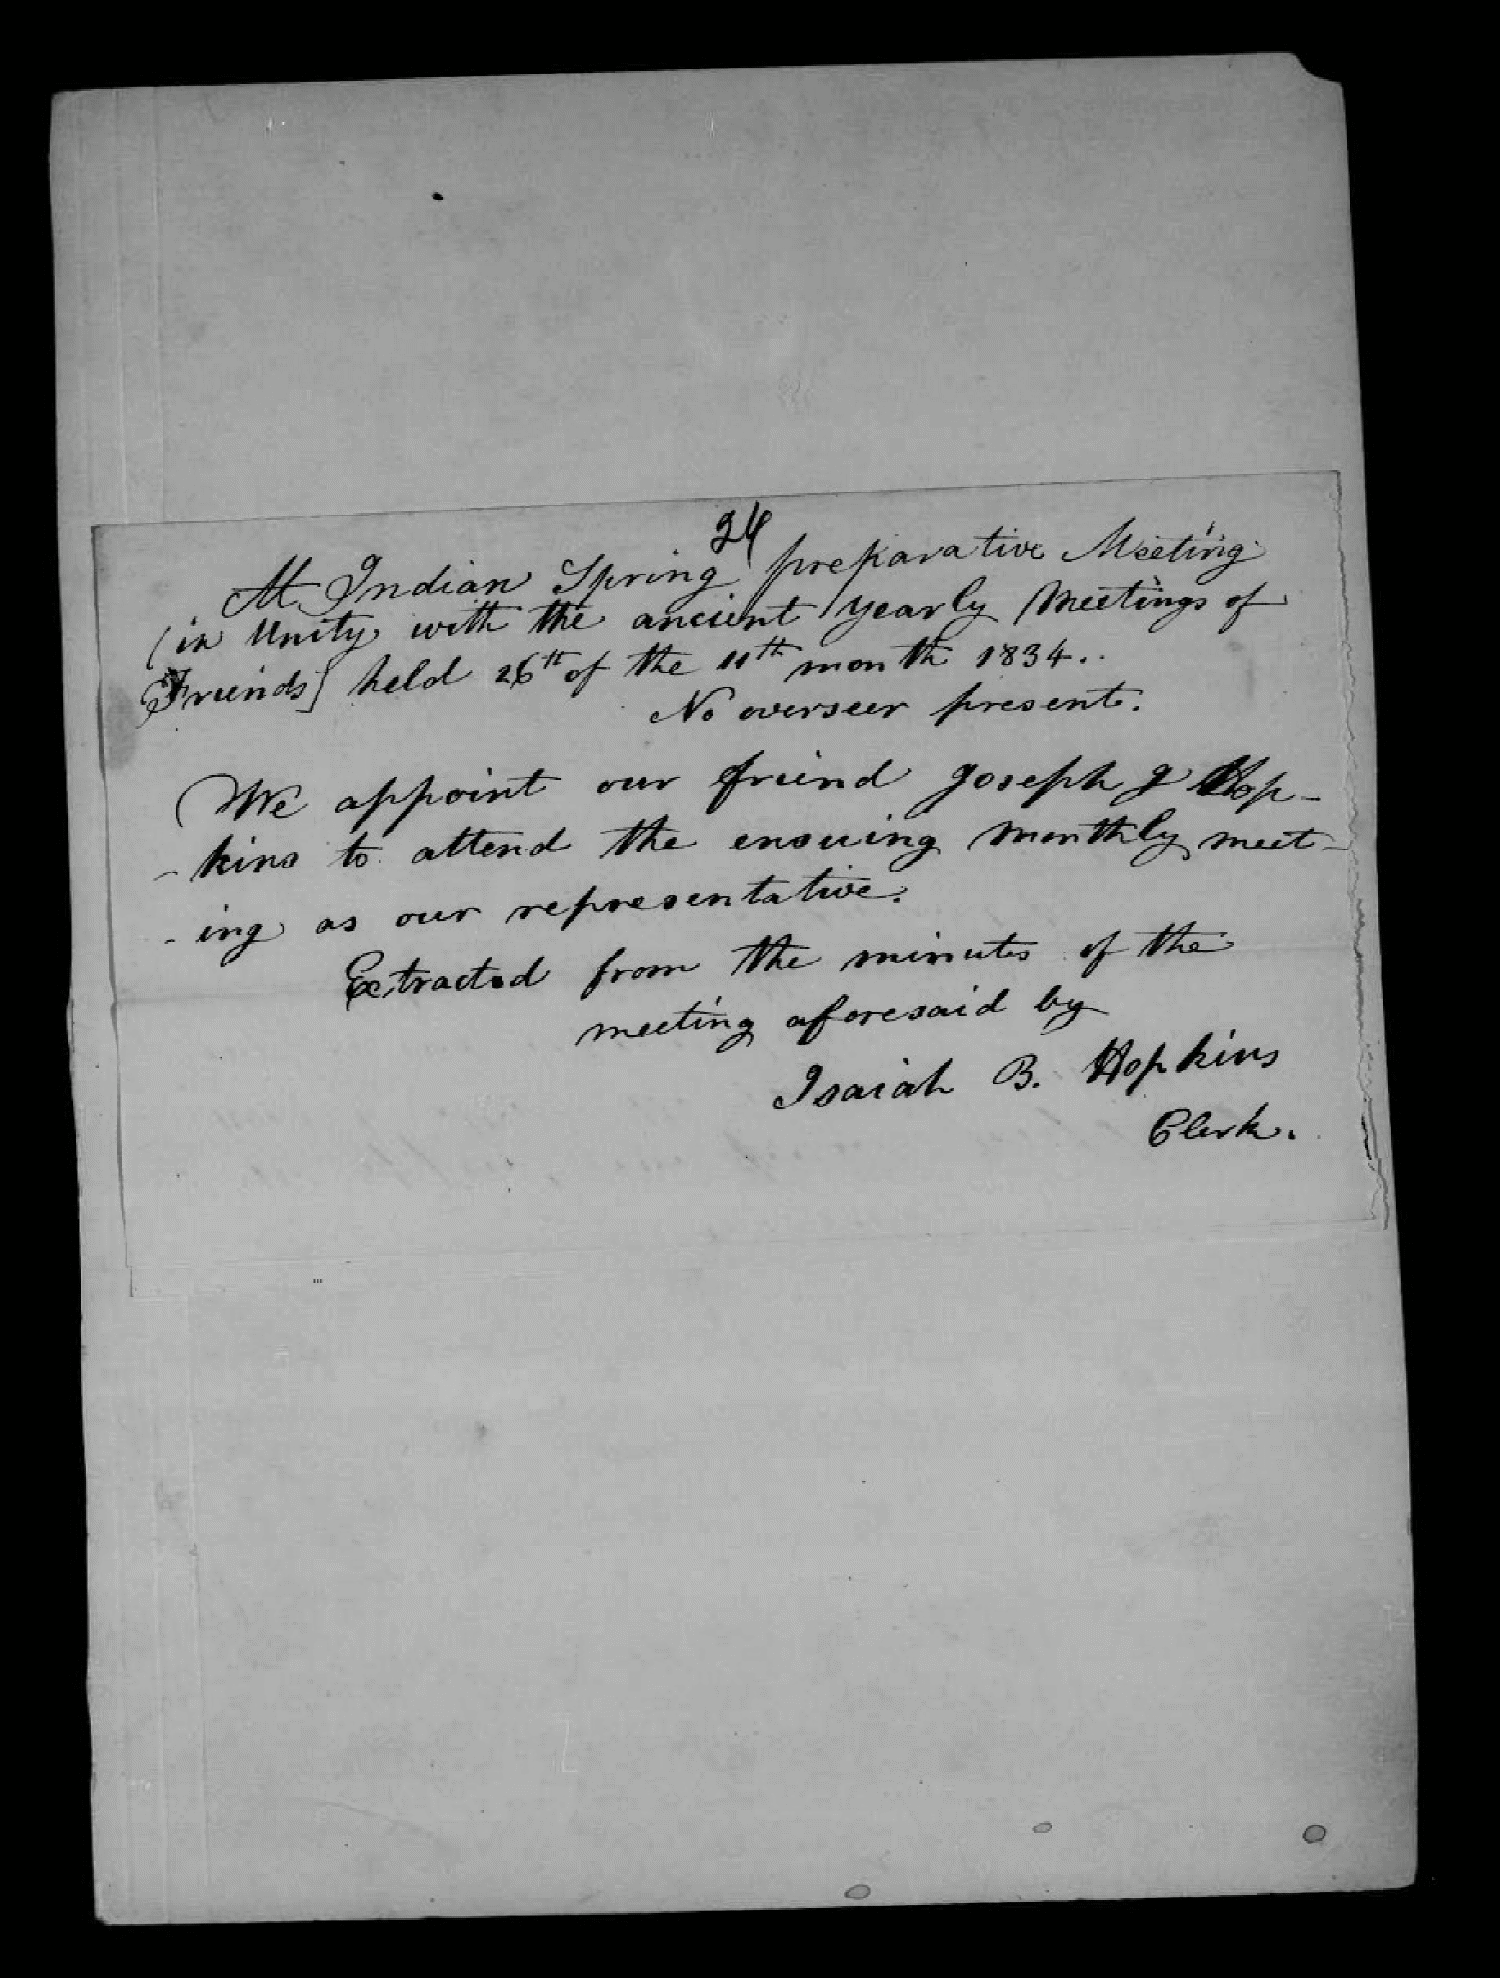 24
At Indian Spring preparative Meeting
(in Unity with the ancient yearly Meetings of
Friends] held 26th of the 11th month 1834..
No overseer present.
We appoint our friend Joseph J Hop-
- kins to attend the ensuing monthly meet-
- ing as our representative.
Extracted from the minutes of the
meeting aforesaid by
Isaiah B. Hopkins
Clerk.